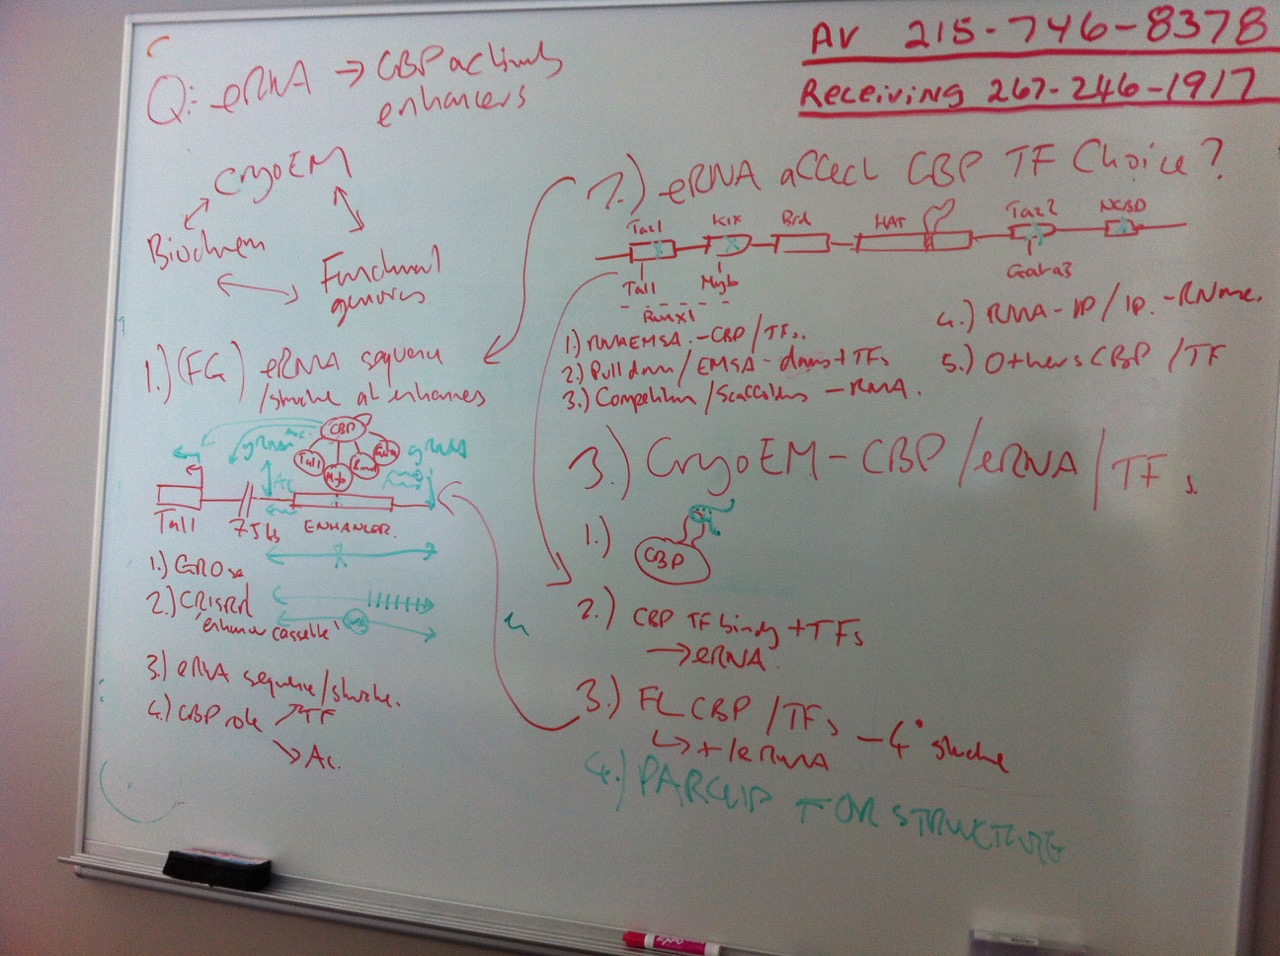 AV 215-746-8378
Receiving 267-246-1917
Q: eRNA → CBP activity
enhancers
CryoEM
Biochem
Functional
genomics
1.) (FG) eRNA sequence
/structure at enhancers
CBP
Ac.
gRNA
Tal1
Myb
Runx1
Gata
gRNA
Ac
Tal1
75kb
ENHANCER.
1.) GRO
2.) CRISPR
'enhancer cassette'
3.) eRNA sequence/structure.
4.) CBP role → TF
→ Ac.
2.) eRNA affect CBP TF Choice?
Taz1 KIX Brd HAT Taz2 NCBD
Tal1 Myb Gata3
Runx1
1.) RNA EMSA. - CBP/TFs.
2.) Pull down/EMSA - doms + TFs
3.) Competition/Scaffolding - RNA.
4.) RNA-IP/IP.-RNase.
5.) Others CBP/TF
3.) CryoEM - CBP/eRNA/TFs.
1.) CBP
2.) CBP TF binding + TFs
→ eRNA.
3.) FL CBP/TFs - 4° structure
↳ +/eRNA
4.) PARCLIP FOR STRUCTURE